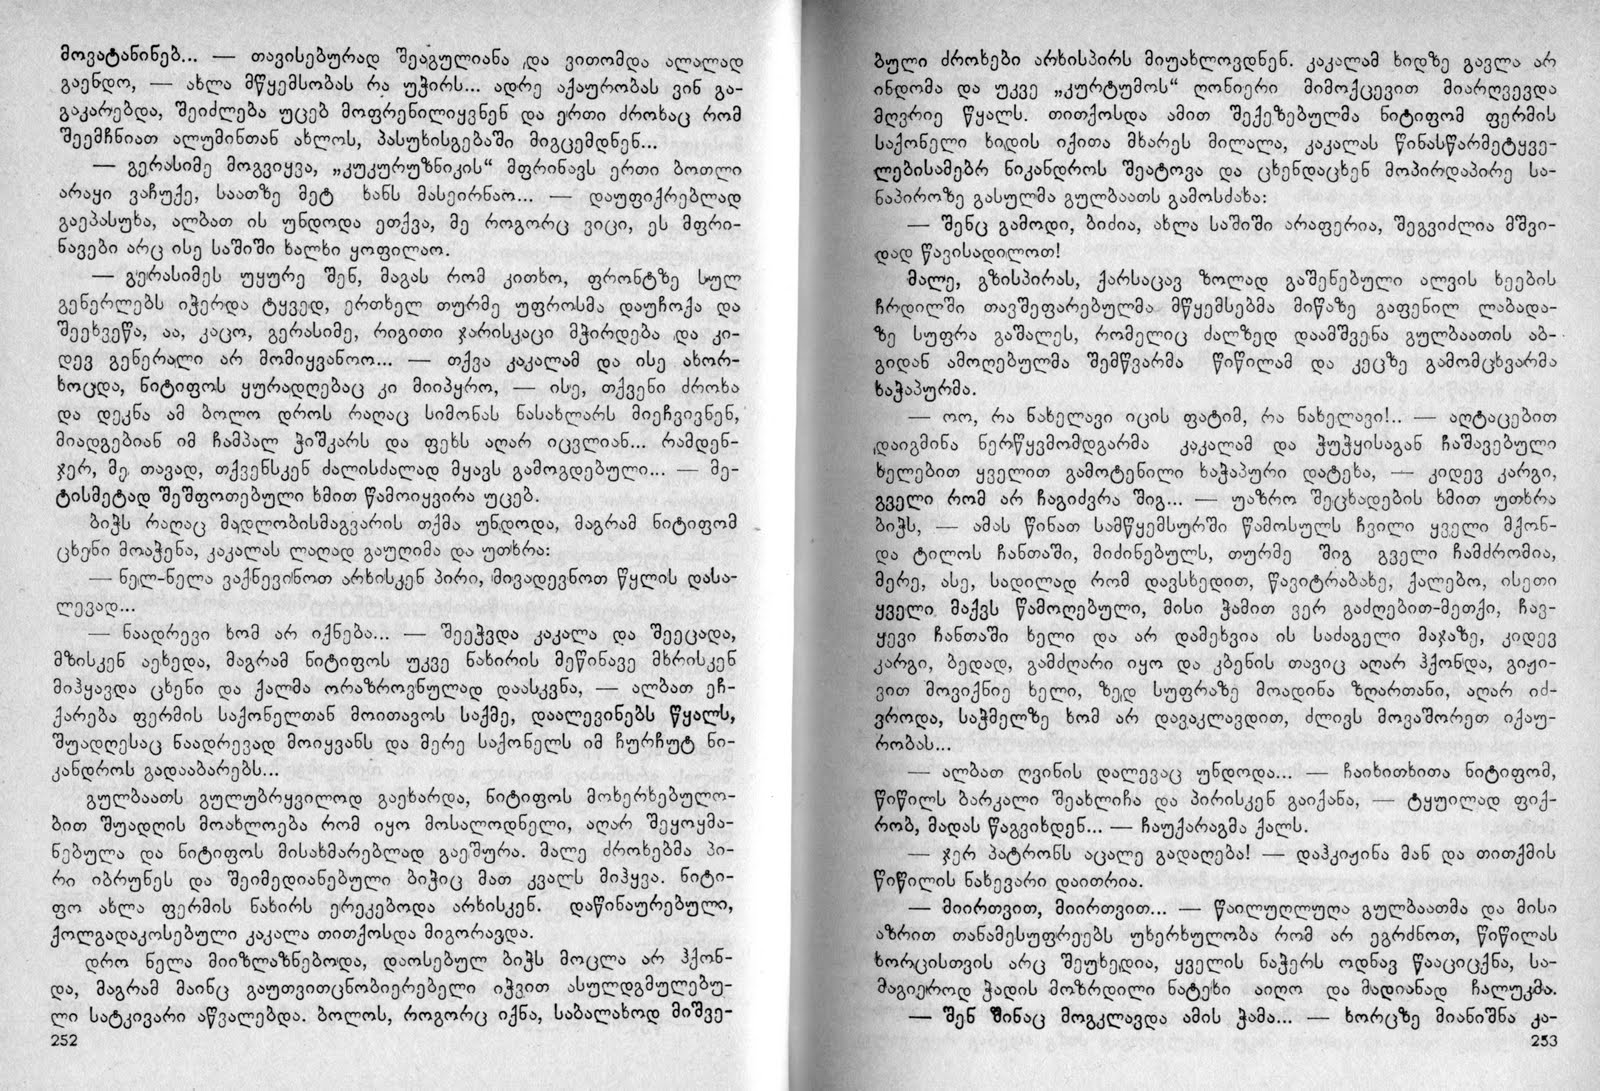 მოვატანინებ... — თავისებურად შეაგულიანა და ვითომდა ალალად
გაენდო, — ახლა მწყემსობას რა უჭირს... ადრე აქაურობას ვინ გა-
გაკარებდა, შეიძლება უცებ მოფრენილიყვნენ და ერთი ძროხაც რომ
შეემჩნიათ ალუმინთან ახლოს, პასუხისგებაში მიგცემდნენ...
— გერასიმე მოგვიყვა, „კუკურუზნიკის“ მფრინავს ერთი ბოთლი
არაყი ვაჩუქე, საათზე მეტ ხანს მასეირნაო... — დაუფიქრებლად
გაეპასუხა, ალბათ ის უნდოდა ეთქვა, მე როგორც ვიცი, ეს მფრი-
ნავები არც ისე საშიში ხალხი ყოფილაო.
— გერასიმეს უყურე შენ, მაგას რომ კითხო, ფრონტზე სულ
გენერლებს იჭერდა ტყვედ, ერთხელ თურმე უფროსმა დაუჩოქა და
შეეხვეწა, აა, კაცო, გერასიმე, რიგითი ჯარისკაცი მჭირდება და კი-
დევ გენერალი არ მომიყვანოო... — თქვა კაკალამ და ისე ახორ-
ხოცდა, ნიტიფოს ყურადღებაც კი მიიპყრო, — ისე, თქვენი ძროხა
და დეკნა ამ ბოლო დროს რაღაც სიმონას ნასახლარს მიეჩვივნენ,
მიადგებიან იმ ჩამპალ ჭიშკარს და ფეხს აღარ იცვლიან... რამდენ-
ჯერ, მე თავად, თქვენსკენ ძალისძალად მყავს გამოგდებული... — მე-
ტისმეტად შეშფოთებული ხმით წამოიყვირა უცებ.
ბიჭს რაღაც მადლობისმაგვარის თქმა უნდოდა, მაგრამ ნიტიფომ
ცხენი მოაჭენა, კაკალას ლაღად გაუღიმა და უთხრა:
— ნელ-ნელა ვაქნევინოთ არხისკენ პირი, მივადევნოთ წყლის დასა-
ლევად...
— ნაადრევი ხომ არ იქნება... — შეეჭვდა კაკალა და შეეცადა,
მზისკენ აეხედა, მაგრამ ნიტიფოს უკვე ნახირის მეწინავე მხრისკენ
მიჰყავდა ცხენი და ქალმა ორაზროვნულად დაასკვნა, — ალბათ ეჩ-
ქარება ფერმის საქონელთან მოითავოს საქმე, დაალევინებს წყალს,
შუადღესაც ნაადრევად მოიყვანს და მერე საქონელს იმ ჩურჩუტ ნი-
კანდროს გადააბარებს...
გულბაათს გულუბრყვილოდ გაეხარდა, ნიტიფოს მოხერხებულო-
ბით შუადღის მოახლოება რომ იყო მოსალოდნელი, აღარ შეყოყმა-
ნებულა და ნიტიფოს მისახმარებლად გაეშურა. მალე ძროხებმა პი-
რი იბრუნეს და შეიმედიანებული ბიჭიც მათ კვალს მიჰყვა. ნიტი-
ფო ახლა ფერმის ნახირს ერეკებოდა არხისკენ. დაწინაურებული,
ქოლგადაკოსებული კაკალა თითქოსდა მიგორავდა.
დრო ნელა მიიზლაზნებოდა, დაოსებულ ბიჭს მოცლა არ ჰქონ-
და, მაგრამ მაინც გაუთვითცნობიერებელი იჭვით ასულდგმულებუ-
ლი სატკივარი აწვალებდა. ბოლოს, როგორც იქნა, საბალახოდ მიშვე-
252
ბული ძროხები არხისპირს მიუახლოვდნენ. კაკალამ ხიდზე გავლა არ
ინდომა და უკვე „კურტუმოს“ ღონიერი მიმოქცევით მიარღვევდა
მღვრიე წყალს. თითქოსდა ამით შექეზებულმა ნიტიფომ ფერმის
საქონელი ხიდის იქითა მხარეს მილალა, კაკალას წინასწარმეტყვე-
ლებისამებრ ნიკანდროს შეატოვა და ცხენდაცხენ მოპირდაპირე სა-
ნაპიროზე გასულმა გულბაათს გამოსძახა:
— შენც გამოდი, ბიძია, ახლა საშიში არაფერია, შეგვიძლია მშვი-
დად წავისადილოთ!
მალე, გზისპირას, ქარსაცავ ზოლად გაშენებული ალვის ხეების
ჩრდილში თავშეფარებულმა მწყემსებმა მიწაზე გაფენილ ლაბადა-
ზე სუფრა გაშალეს, რომელიც ძალზედ დაამშვენა გულბაათის აბ-
გიდან ამოღებულმა შემწვარმა წიწილამ და კეცზე გამომცხვარმა
ხაჭაპურმა.
— ოო, რა ნახელავი იცის ფატიმ, რა ნახელავი!.. — აღტაცებით
დაიგმინა ნერწყვმომდგარმა კაკალამ და ჭუჭყისაგან ჩაშავებული
ხელებით ყველით გამოტენილი ხაჭაპური დატეხა, — კიდევ კარგი,
გველი რომ არ ჩაგიძვრა შიგ... — უაზრო შეცხადების ხმით უთხრა
ბიჭს, — ამას წინათ სამწყემსურში წამოსულს ჩვილი ყველი მქონ-
და ტილოს ჩანთაში, მიძინებულს, თურმე შიგ გველი ჩამძრომია,
მერე, ასე, სადილად რომ დავსხედით, წავიტრაბახე, ქალებო, ისეთი
ყველი მაქვს წამოღებული, მისი ჭამით ვერ გაძღებით-მეთქი, ჩავ-
ყევი ჩანთაში ხელი და არ დამეხვია ის საძაგელი მაჯაზე, კიდევ
კარგი, ბედად, გამძღარი იყო და კბენის თავიც აღარ ჰქონდა, გიჟი-
ვით მოვიქნიე ხელი, ზედ სუფრაზე მოადინა ზღართანი, აღარ იძ-
ვროდა, საჭმელზე ხომ არ დავაკლავდით, ძლივს მოვაშორეთ იქაუ-
რობას...
— ალბათ ღვინის დალევაც უნდოდა... — ჩაიხითხითა ნიტიფომ,
წიწილს ბარკალი შეახლიჩა და პირისკენ გაიქანა, — ტყუილად ფიქ-
რობ, მადას წაგვიხდენ... — ჩაუქარაგმა ქალს.
— ჯერ პატრონს აცალე გადაღება! — დაჰკიჟინა მან და თითქმის
წიწილის ნახევარი დაითრია.
— მიირთვით, მიირთვით... — წაილუღლუღა გულბაათმა და მისი
აზრით თანამესუფრეებს უხერხულობა რომ არ ეგრძნოთ, წიწილას
ხორცისთვის არც შეუხედია, ყველის ნაჭერს ოდნავ წააციცქნა, სა-
მაგიეროდ ჭადის მოზრდილი ნატეხი აიღო და მადიანად ჩალუკმა.
— შენ შინაც მოგკლავდა ამის ჭამა... — ხორცზე მიანიშნა კა-
253